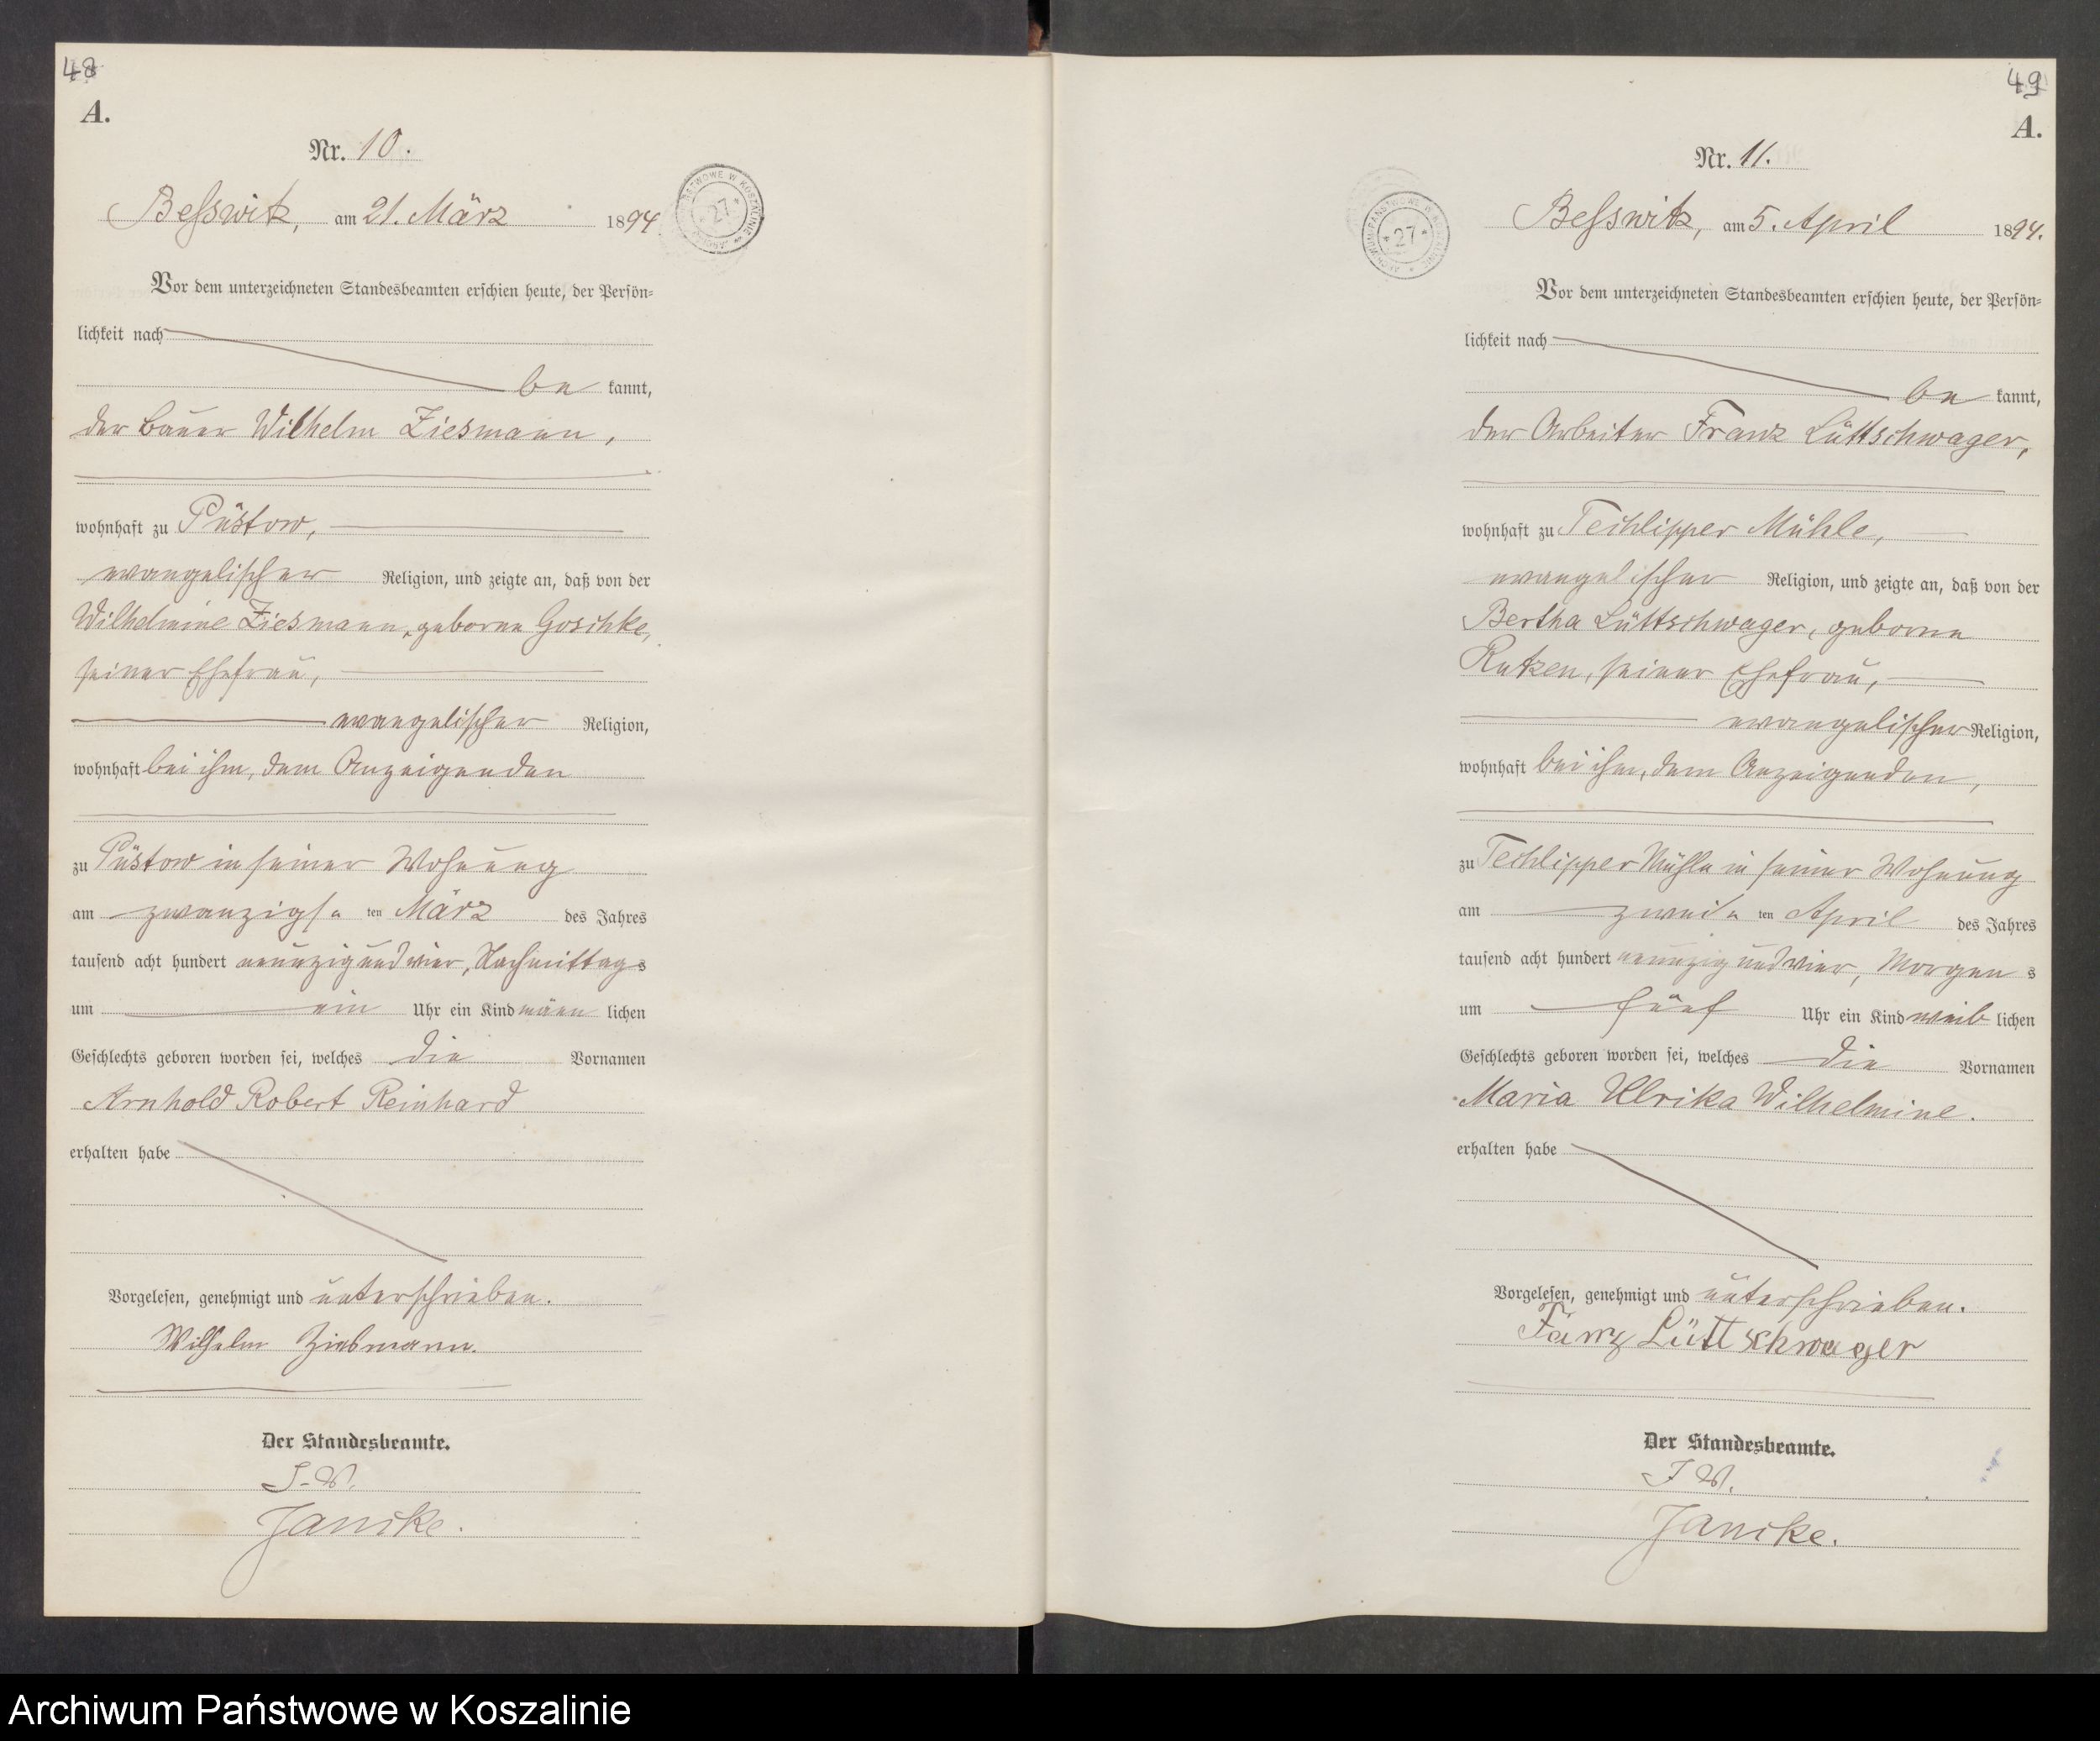 48
A.
Nr. 10.
Besswitz, am 21. März 1894
Vor dem unterzeichneten Standesbeamten erschien heute, der Persön-
lichkeit nach
be kannt,
der Bauer Wilhelm Ziesmann,
wohnhaft zu Püstow,
evangelischer Religion, und zeigte an, daß von der
Wilhelmine Ziesmann, geborne Goschke,
seiner Ehefrau,
evangelischer Religion,
wohnhaft bei ihm, dem Anzeigenden
zu Püstow in seiner Wohnung
am zwanzigsten März des Jahres
tausend acht hundert neunzig und vier, Nachmittags
um ein Uhr ein Kind männlichen
Geschlechts geboren worden sei, welches die Vornamen
Arnhold Robert Reinhard
erhalten habe
Vorgelesen, genehmigt und unterschrieben.
Wilhelm Ziesmann.
Der Standesbeamte.
I. V.
Janicke.
49
A.
Nr. 11.
Besswitz, am 5. April 1894.
Vor dem unterzeichneten Standesbeamten erschien heute, der Persön-
lichkeit nach
be kannt,
der Arbeiter Franz Lüttschwager,
wohnhaft zu Techlipper Mühle,
evangelischer Religion, und zeigte an, daß von der
Bertha Lüttschwager, geborne
Rutzen, seiner Ehefrau,
evangelischer Religion,
wohnhaft bei ihm, dem Anzeigenden,
zu Techlipper Mühle in seiner Wohnung
am zweiten April des Jahres
tausend acht hundert neunzig und vier, Morgens
um fünf Uhr ein Kind weiblichen
Geschlechts geboren worden sei, welches die Vornamen
Maria Ulrika Wilhelmine.
erhalten habe
Vorgelesen, genehmigt und unterschrieben.
Franz Lüttschwager
Der Standesbeamte.
I. V.
Janicke.
Archiwum Państwowe w Koszalinie